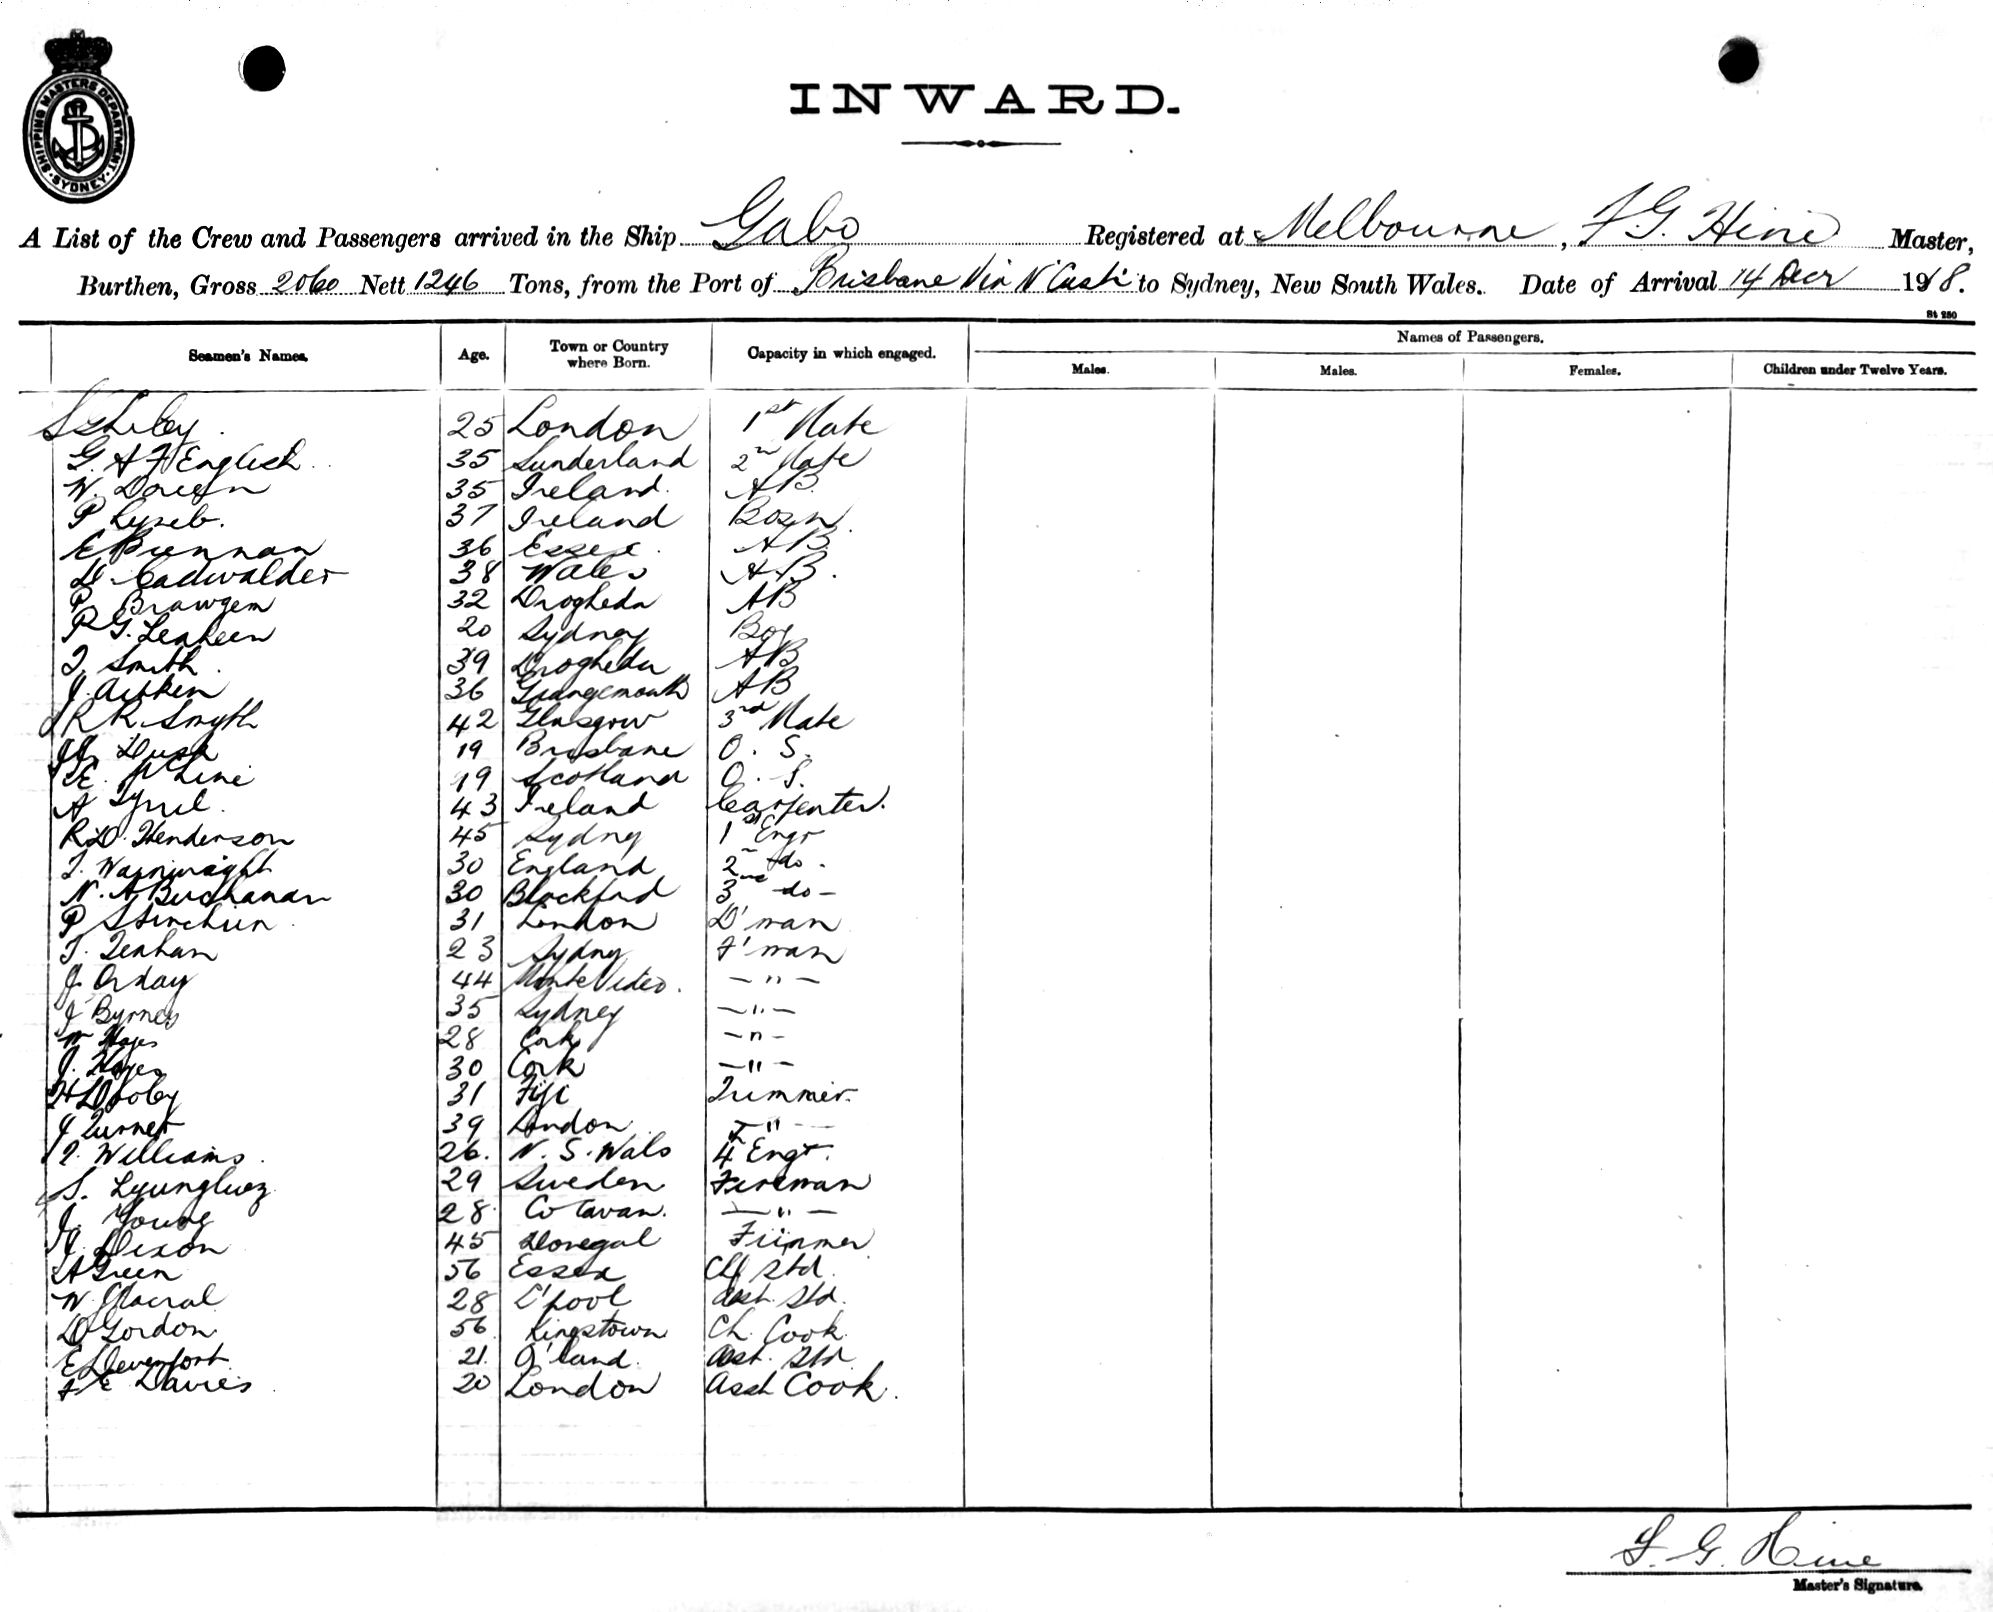 SHIPPING MASTERS DEPARTMENT SYDNEY
INWARD.
A List of the Crew and Passengers arrived in the Ship Gabo Registered at Melbourne, F G. Hine Master,
Burthen, Gross 2060 Nett 1246 Tons, from the Port of Brisbane Via N'Castle to Sydney, New South Wales. Date of Arrival 14 Decr 1918.
St 250
Seamen's Names. Age. Town or Country where Born. Capacity in which engaged. Names of Passengers.
Males. Males. Females. Children under Twelve Years.
25 London 1st Mate
G. A F English 35 Sunderland 2nd Mate
W. 35 Ireland. AB
P 37 Ireland Bosn.
E Brennan 36 Essex. AB
D. Cadwalder 38 Wales AB.
P 32 Drogheda AB
P G. 20 Sydney Boy
T. Smith 39 Drogheda AB
J. Aitken 36 Grangemouth AB
R R. Smyth 42 Glasgow 3rd Mate
19 Brisbane O. S.
E. 19 Scotland O. S.
A 43 Ireland Carpenter.
R D. Henderson 45 Sydney 1st Engr
T. Wainwright 30 England 2nd do.
N. A Buchanan 30 3rd do -
P 31 London D'man
T. 23 Sydney F'man
J. 44 Monte Video. - " -
J Byrnes 35 Sydney - " -
W Hayes 28 Cork - " -
J. Hayes 30 Cork - " -
31 Fiji
J Turner 39 London - " -
T. Williams. 26. N. S. Wales 4 Engr.
S. 29 Sweden Fireman
J. Young 28. Co Cavan. - " -
J. Dixon 45 Donegal
A Green 56 Essex Ch Std.
W. 28 L'pool Asst. Std.
D Gordon 56 Kingstown Ch. Cook.
E Devenport 21. Q'land. Asst. Std
F E Davies 20 London Asst Cook.
F. G. Hine
Master's Signature.